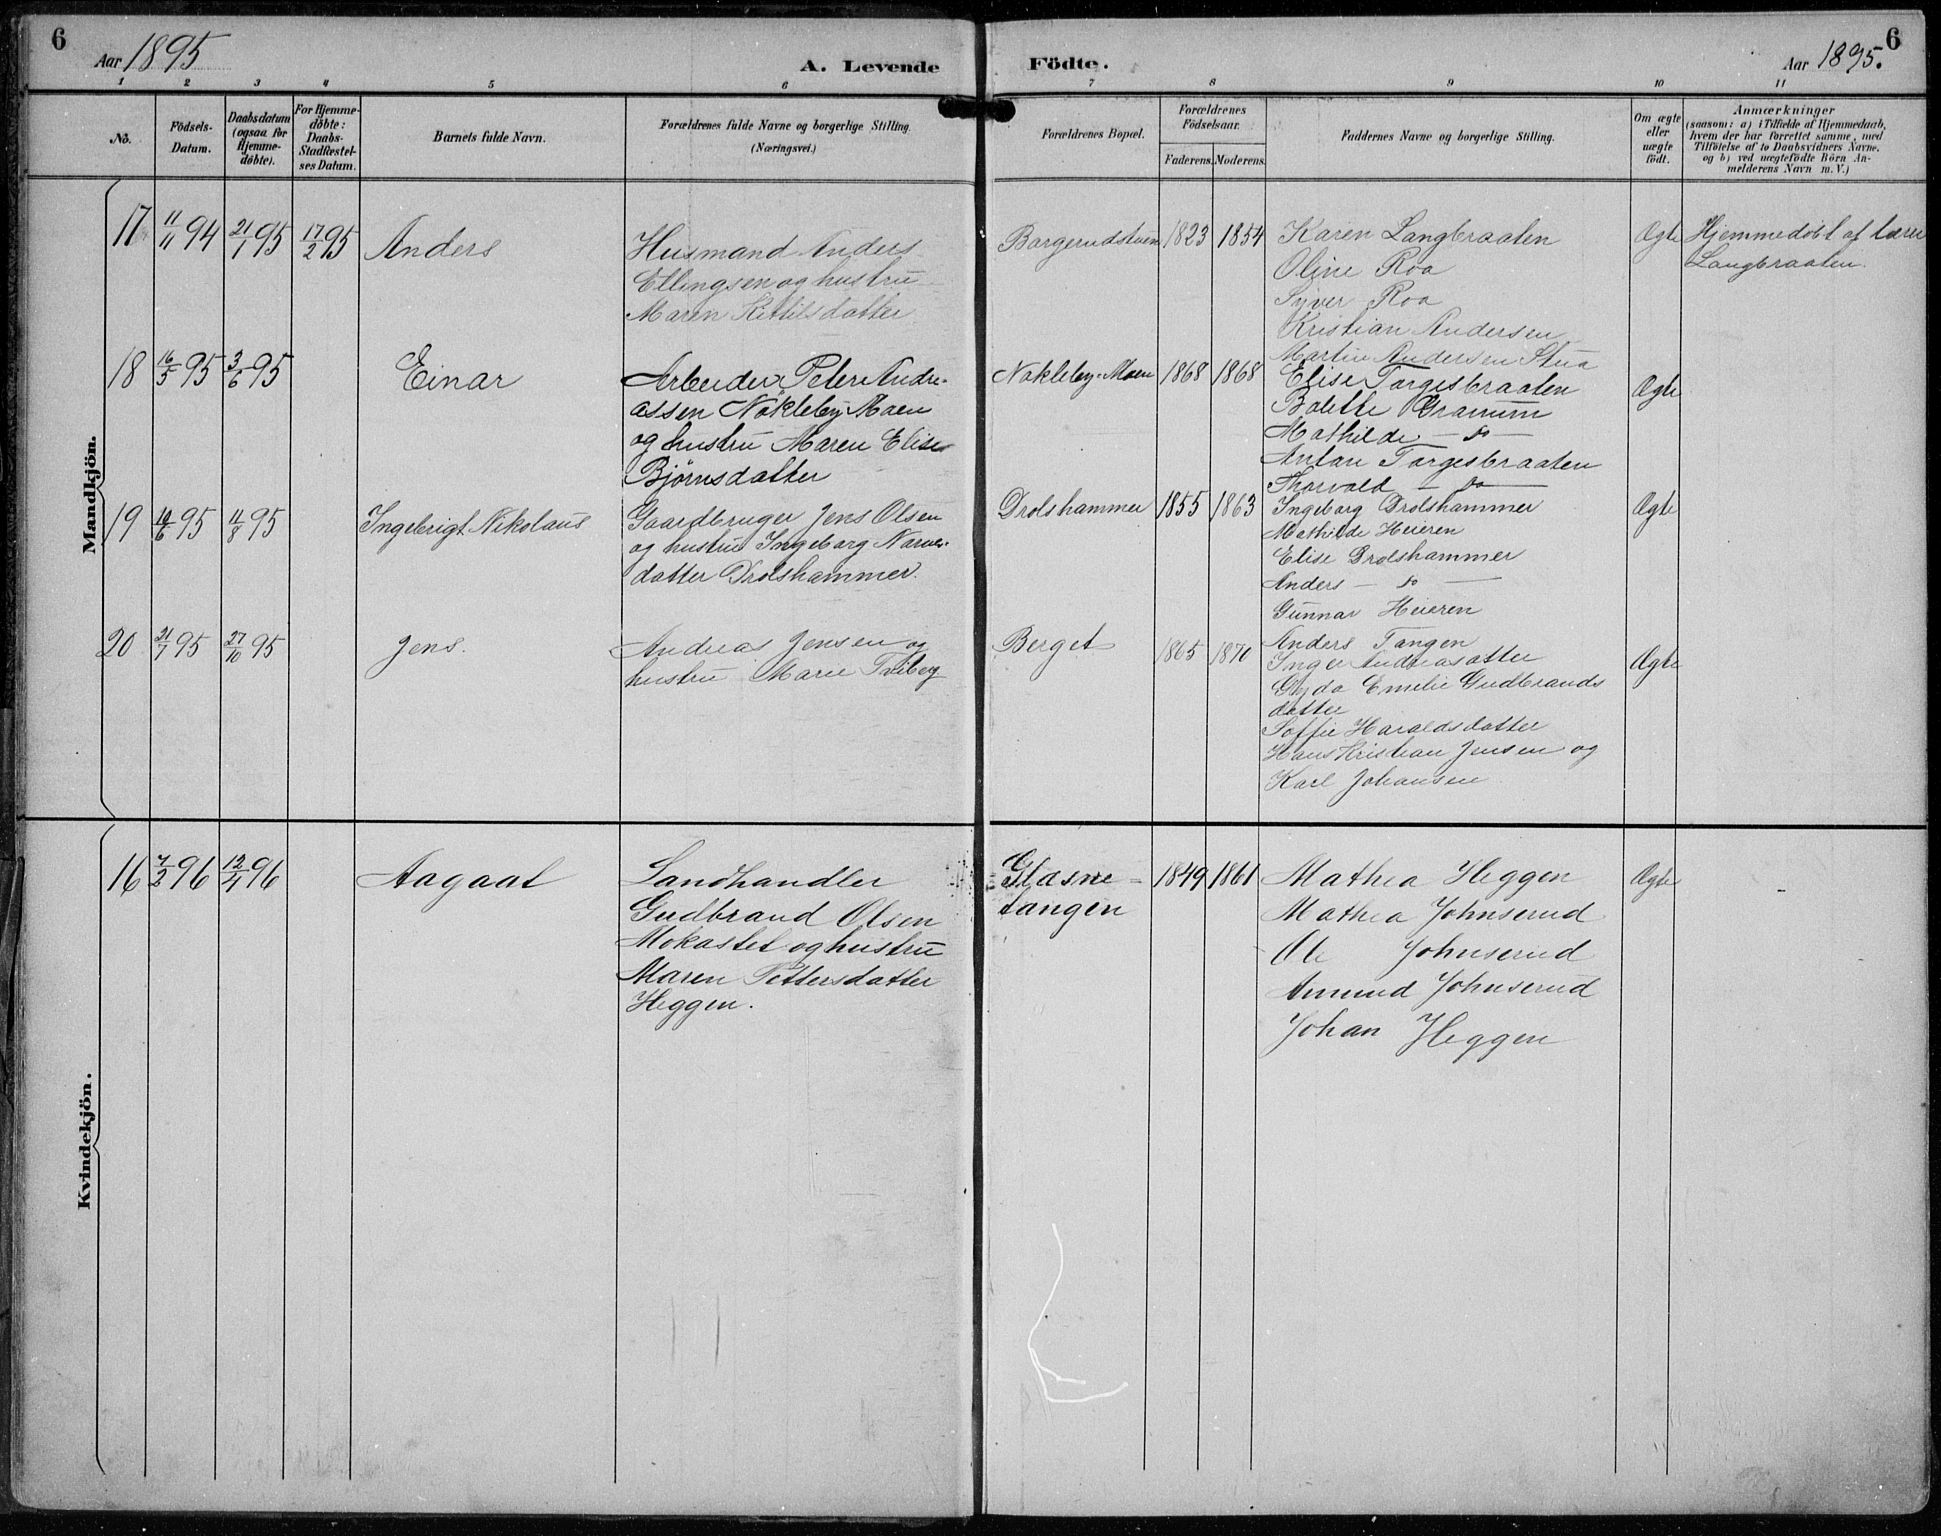 6
Aar 1895
A. Levende
1 2 3 4 5 6
No.
Födsels-Datum.
Daabsdatum (ogsaa for Hjemme-döbte).
For Hjemme-döbte: Daabs-Stadfæstel-ses Datum.
Barnets fulde Navn.
Forældrenes fulde Navne og borgerlige Stilling.
(Næringsvei.)
Mandkjön.
17 11/11 94 21/1 95 17/2 95 Anders
Husmand Anders
Ellingsen og hustru
Maren Kittilsdatter
18 16/5 95 3/6 95 Einar
Arbeider Peter Andre-
assen Nökleby Moen
og hustru Maren Elise
Björnsdatter
19 /6 95 11/8 95 Ingebrigt Nikolaus
Gaardbruger Jens Olsen
og hustru Ingeborg Narves-
datter Drolshammer.
20 21/7 95 27/10 95 Jens.
Andreas Jensen og
hustru Marie
Kvindekjön.
16 7/2 96 12/4 96 Aagaat
Landhandler
Gudbrand Olsen
Mokastet og hustru
Maren Pettersdatter
Heggen.
Födte.
Aar 1895.
6
7 8 9 10 11
Forældrenes Bopæl.
Forældrenes Födselsaar.
Faderens. Moderens.
Faddernes Navne og borgerlige Stilling.
Om ægte eller uægte födt.
Anmærkninger
(saasom: a) i Tilfælde af Hjemmedaab,
hvem der har forrettet samme, med
Tilföielse af to Daabsvidners Navne,
og b) ved uægtefödte Börn An-
melderens Navn m. V.)
Borgerudstuen 1823 1854 Karen Langbraaten Ægte Hjemmedöbt af lærer
Oline Roa Langbraaten.
Syver Roa
Kristian Andersen
Martin Andersen Stua
Nökleby-Moen 1868 1868 Elise Torgesbraaten Ægte
Bolette Granum
Mathilde — do —
Anton Torgesbraaten
Thorvald — do —
Drolshammer 1855 1863 Ingeborg Drolshammer Ægte
Mathilde Heieren
Elise Drolshammer
Anders — do —
Gunnar Heieren
Berget 1865 1870 Anders Tangen Ægte
Inger Andreasdatter
Gyda Emelie Gudbrands
datter
Soffie Haraldsdatter
Hans Kristian Jensen og
Karl Johansen
Glasne-
tangen
1849 1861 Mathea Heggen Ægte
Mathea Johnserud
Ole Johnserud
Amund Johnserud
Johan Heggen